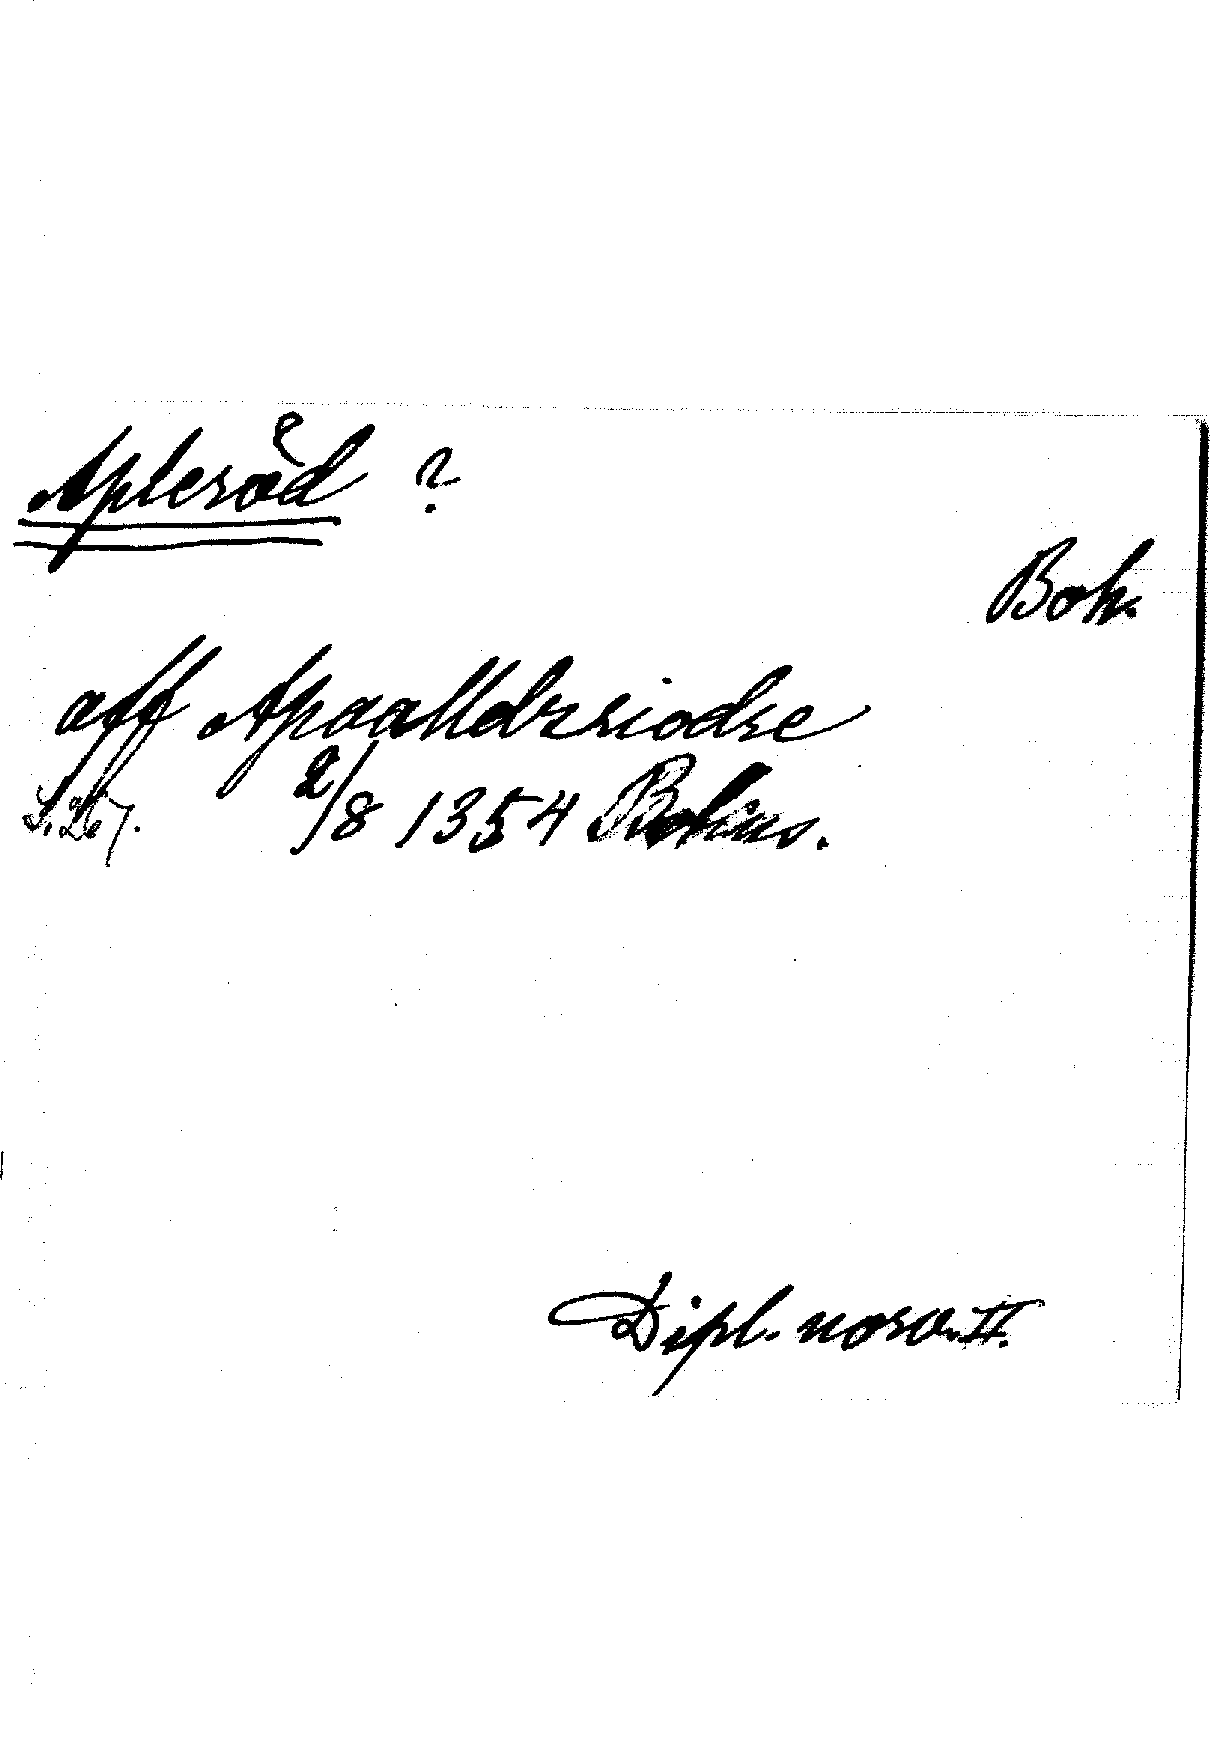 Apleröd ?
Boh.
aff Apaalldrsiodse
S. 267. 2/8 1354 Bohus.
Dipl. norv. II.